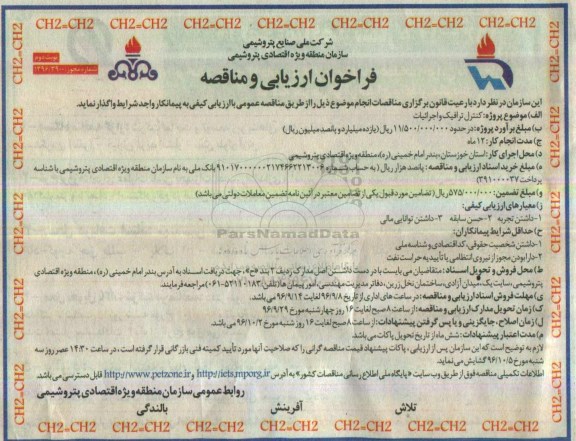 CH2=CH2 CH2=CH2 CH2=CH2 CH2=CH2 CH2=CH2 CH2=CH2 CH2=CH2
شرکت ملی صنایع پتروشیمی
سازمان منطقه ویژه اقتصادی پتروشیمی
نوبت دوم
فراخوان ارزیابی و مناقصه
این سازمان در نظر دارد با رعیت قانون برگزاری مناقصات انجام موضوع ذیل را از طریق مناقصه عمومی با ارزیابی کیفی به پیمانکار واجد شرایط واگذار نماید.
الف) موضوع پروژه: کنترل ترافیک و اجرائیات
ب) مبلغ برآورد پروژه: در حدود ۱۱/۵۰۰/۰۰۰/۰۰۰ ریال (یازده میلیارد و پانصد میلیون ریال)
ج) مدت انجام کار: ۱۲ ماه
د) محل اجرای کار: استان خوزستان، بندر امام خمینی (ره)، منطقه ویژه اقتصادی پتروشیمی
ه) مبلغ خرید اسناد ارزیابی و مناقصه: پانصد هزار ریال (به حساب شماره ۲۱۷۴۶۶۲۲۱۳۰۰۴ بانک ملی به نام سازمان منطقه ویژه اقتصادی پتروشیمی با شناسه
و) مبلغ تضمین: ۵۷۵/۰۰۰/۰۰۰ ریال (تضامین مورد قبول یکی از تضامین معتبر در آئین نامه تضمین معاملات دولتی می باشد)
ز) معیارهای ارزیابی کیفی:
۱- داشتن تجربه ۲- حسن سابقه ۳- داشتن توانایی مالی
ح) حداقل شرایط پیمانکاران:
۱- داشتن شخصیت حقوقی، کد اقتصادی و شناسه ملی
۲- دارا بودن مجوز از نیروی انتظامی یا تأییدیه حراست نفت
ط) محل فروش و تحویل اسناد: متقاضیان می بایست با در دست داشتن اصل مدارک ردیف ۲ بند «ح»، جهت دریافت اسناد به آدرس بندر امام خمینی (ره)، منطقه ویژه اقتصادی
پتروشیمی، سایت یک، میدان آزادی، ساختمان نخل زرین، دفاتر مدیریت مهندسی، امور پیمان ها، تلفن: (۵۲۱۲۰۱۸۳-۰۶۱) مراجعه فرمایند.
ی) مهلت فروش اسناد ارزیابی و مناقصه: در ساعت های اداری از تاریخ ۹۶/۹/۸ لغایت ۹۶/۹/۱۴ می باشد.
ک) زمان تحویل مدارک ارزیابی و مناقصه: از ساعت ۸ صبح لغایت ۱۶ روز چهارشنبه مورخ ۹۶/۹/۲۹
ل) زمان اصلاح، جایگزینی و یا پس گرفتن پیشنهادات: از ساعت ۸ صبح لغایت ۱۶ روز شنبه مورخ ۹۶/۱۰/۲ می باشد.
م) مدت اعتبار پیشنهادات: شش ماه از تاریخ تحویل پاکات می باشد.
لازم به توضیح است که این سازمان پس از ارزیابی، پاکات پیشنهاد قیمت مناقصه گرانی را که صلاحیت آنها مورد تأیید کمیته فنی بازرگانی قرار گرفته است، در ساعت ۱۴:۳۰ عصر روز سه
شنبه مورخ ۹۶/۱۰/۵ گشایش می نماید.
اطلاعات تکمیلی مناقصه فوق از طریق وب سایت «پایگاه ملی اطلاع رسانی مناقصات کشور» به آدرس http://iets.mporg.ir و http://www.petzone.ir قابل دسترسی می باشد.
روابط عمومی سازمان منطقه ویژه اقتصادی پتروشیمی
تلاش آفرینش بالندگی
CH2=CH2 CH2=CH2 CH2=CH2 CH2=CH2 CH2=CH2 CH2=CH2 CH2=CH2
ParsNamadData